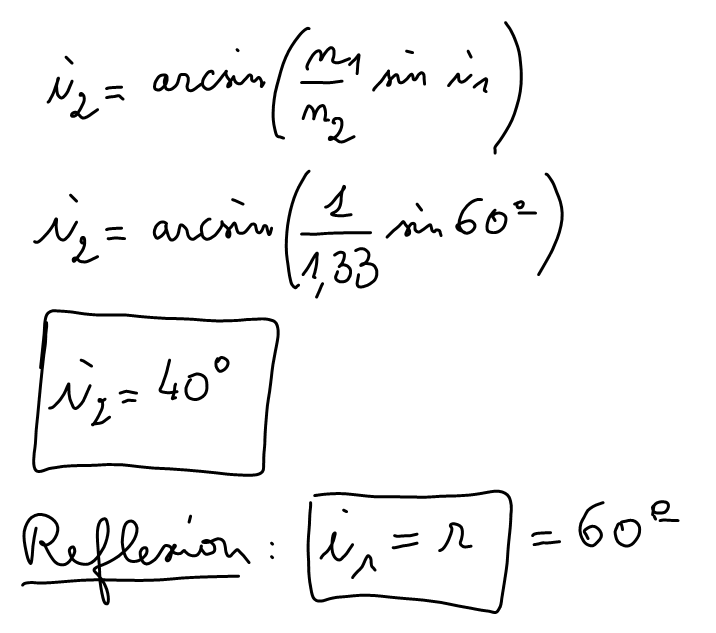 i₂ = arcsin(n₁/n₂ sin i₁)
i₂ = arcsin(1/1,33 sin 60°)
i₂ = 40°
Reflexion : i₁ = r = 60°